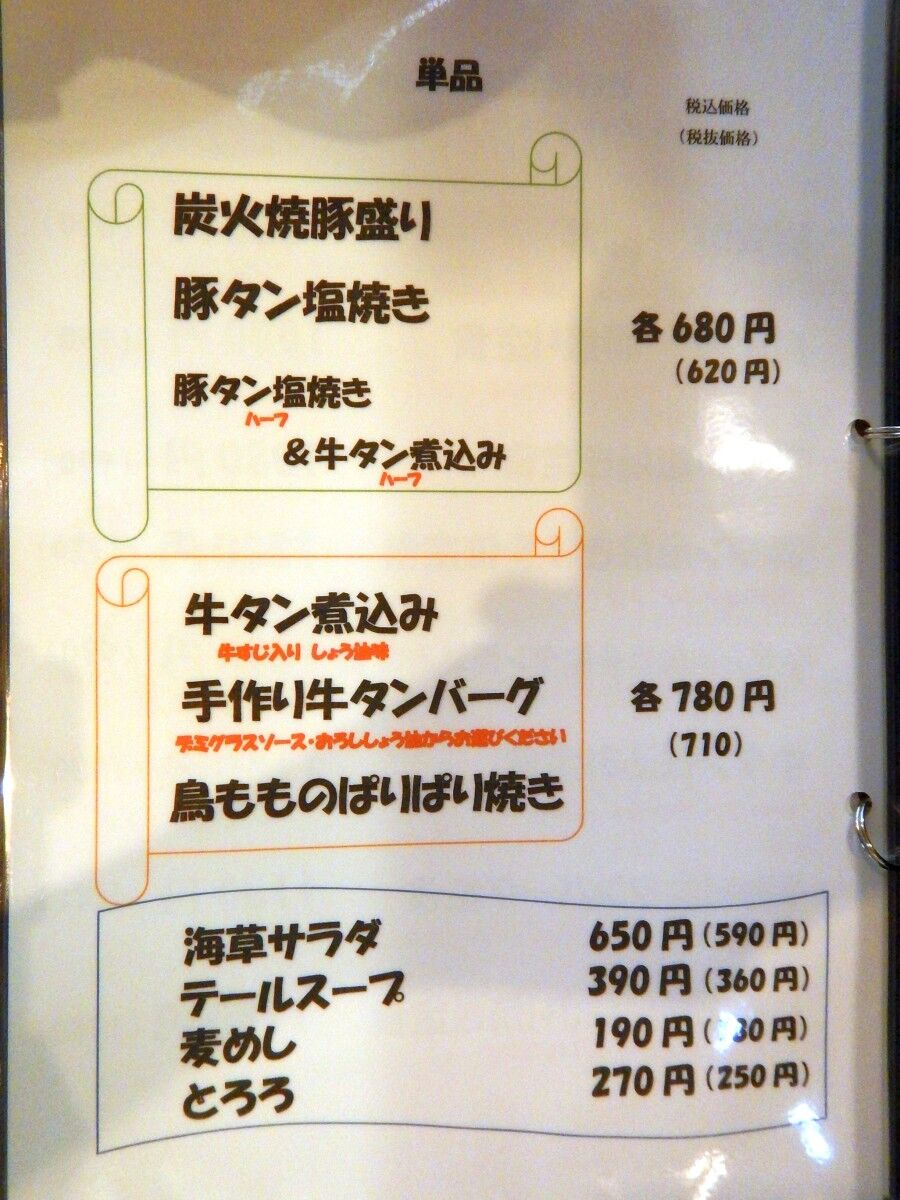 単品
税込価格
(税抜価格)
炭火焼豚盛り
豚タン塩焼き
各680円
(620円)
豚タン塩焼き
ハーフ
&牛タン煮込み
ハーフ
牛タン煮込み
牛すじ入り しょう油味
手作り牛タンバーグ
各780円
(710)
デミグラスソース・おろししょう油からお選びください
鳥もものぱりぱり焼き
海草サラダ 650円(590円)
テールスープ 390円(360円)
麦めし 190円
とろろ 270円(250円)